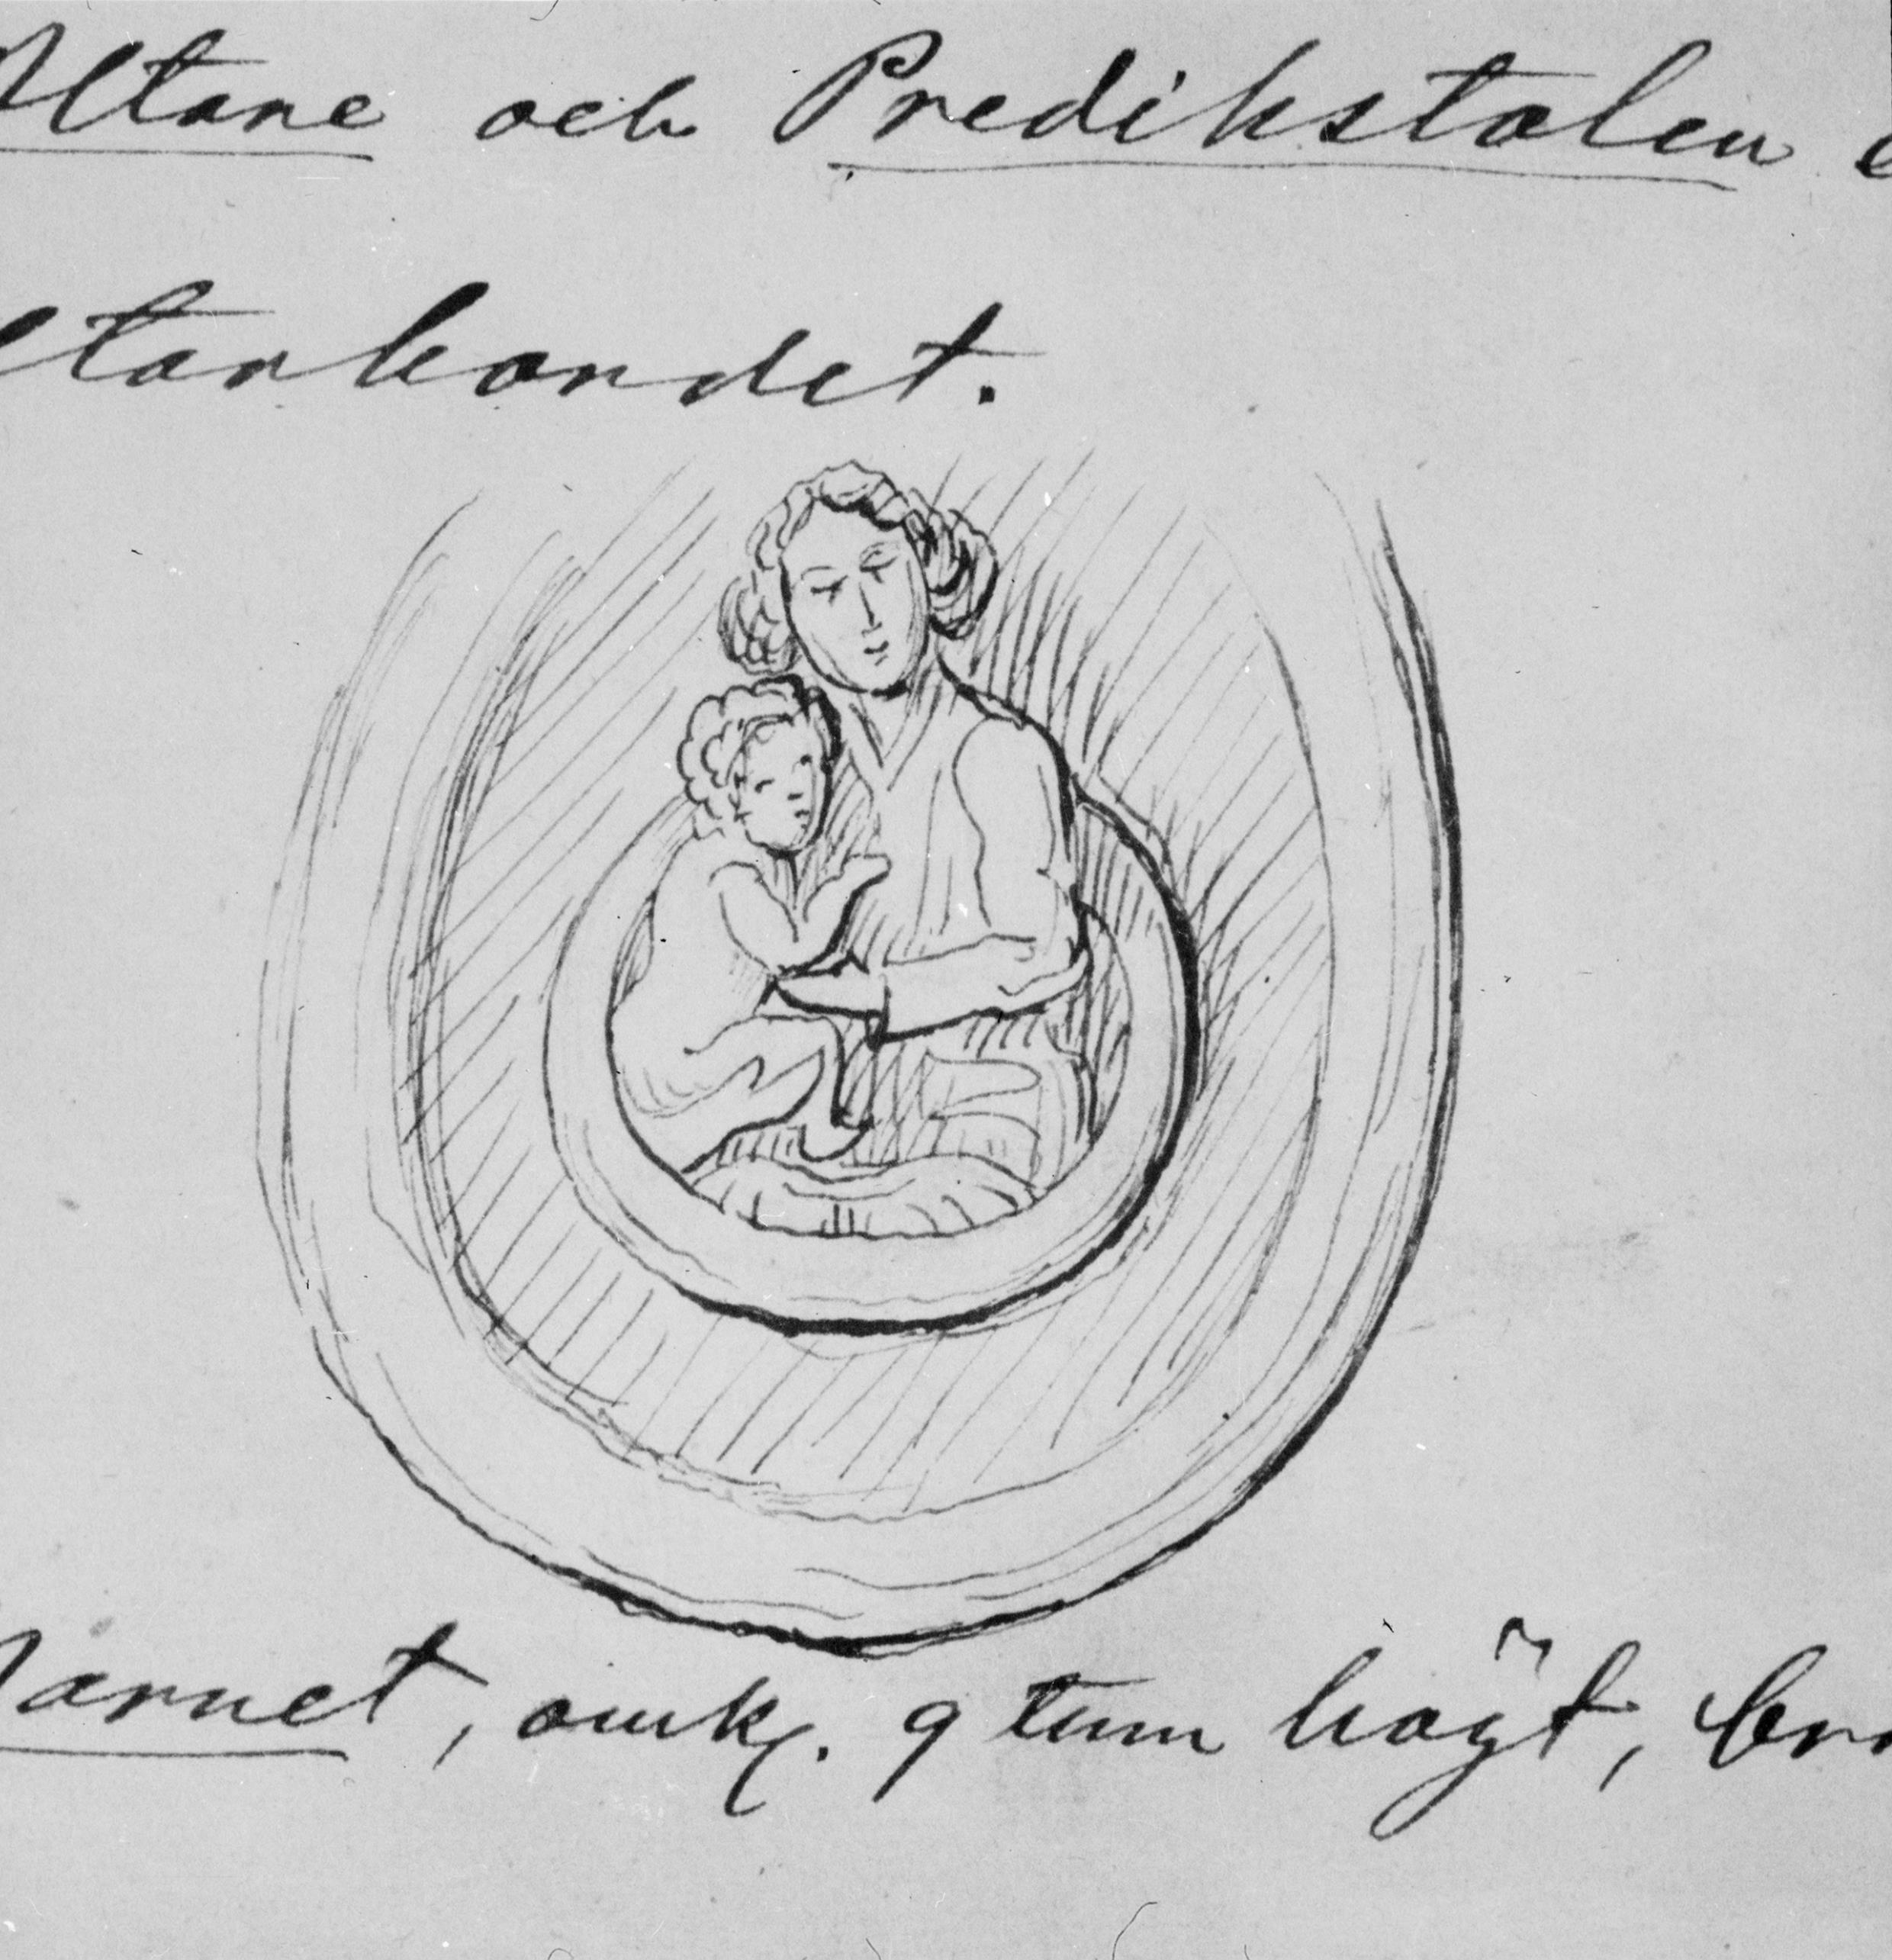 Altare och Predikstolen
ltarbordet.
Barnet, omkr. 9 tum högt,